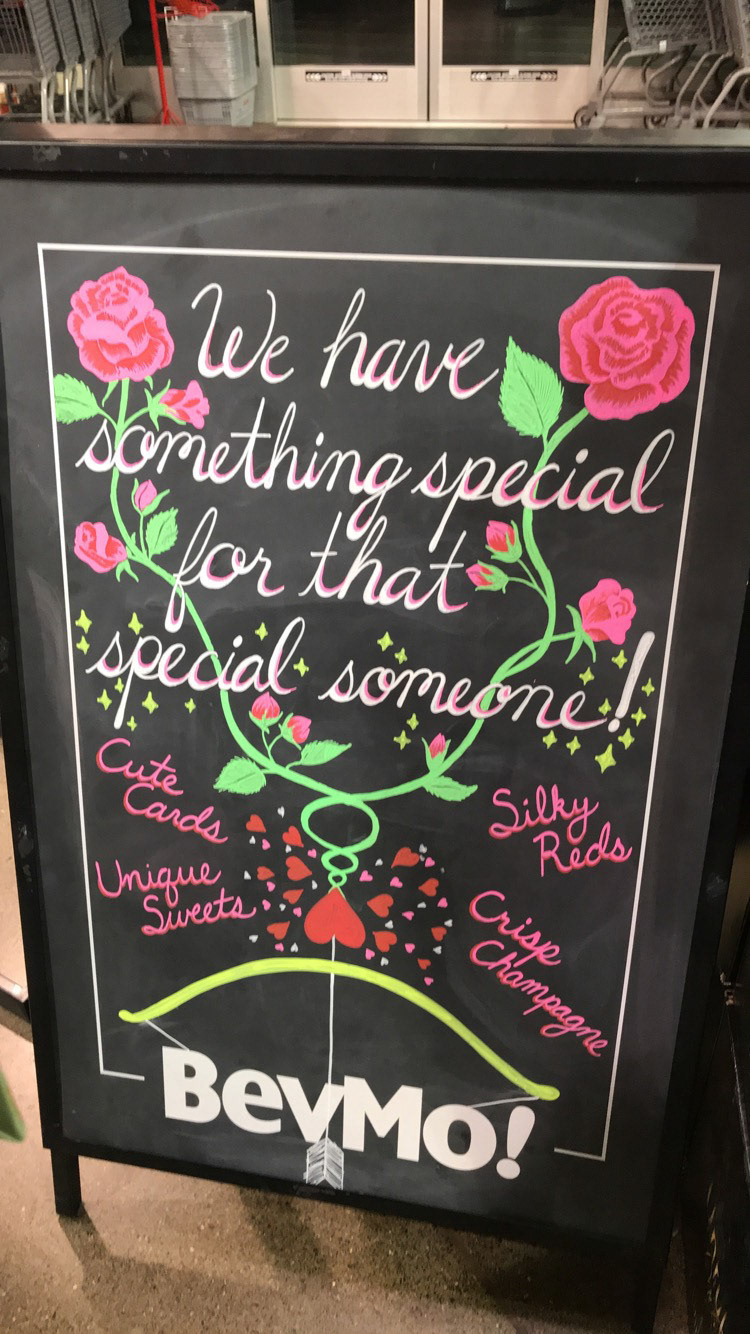 We have
something special
for that
special someone!
Cute
Cards
Unique
Sweets
Silky
Reds
Crisp
Champagne
BevMo!